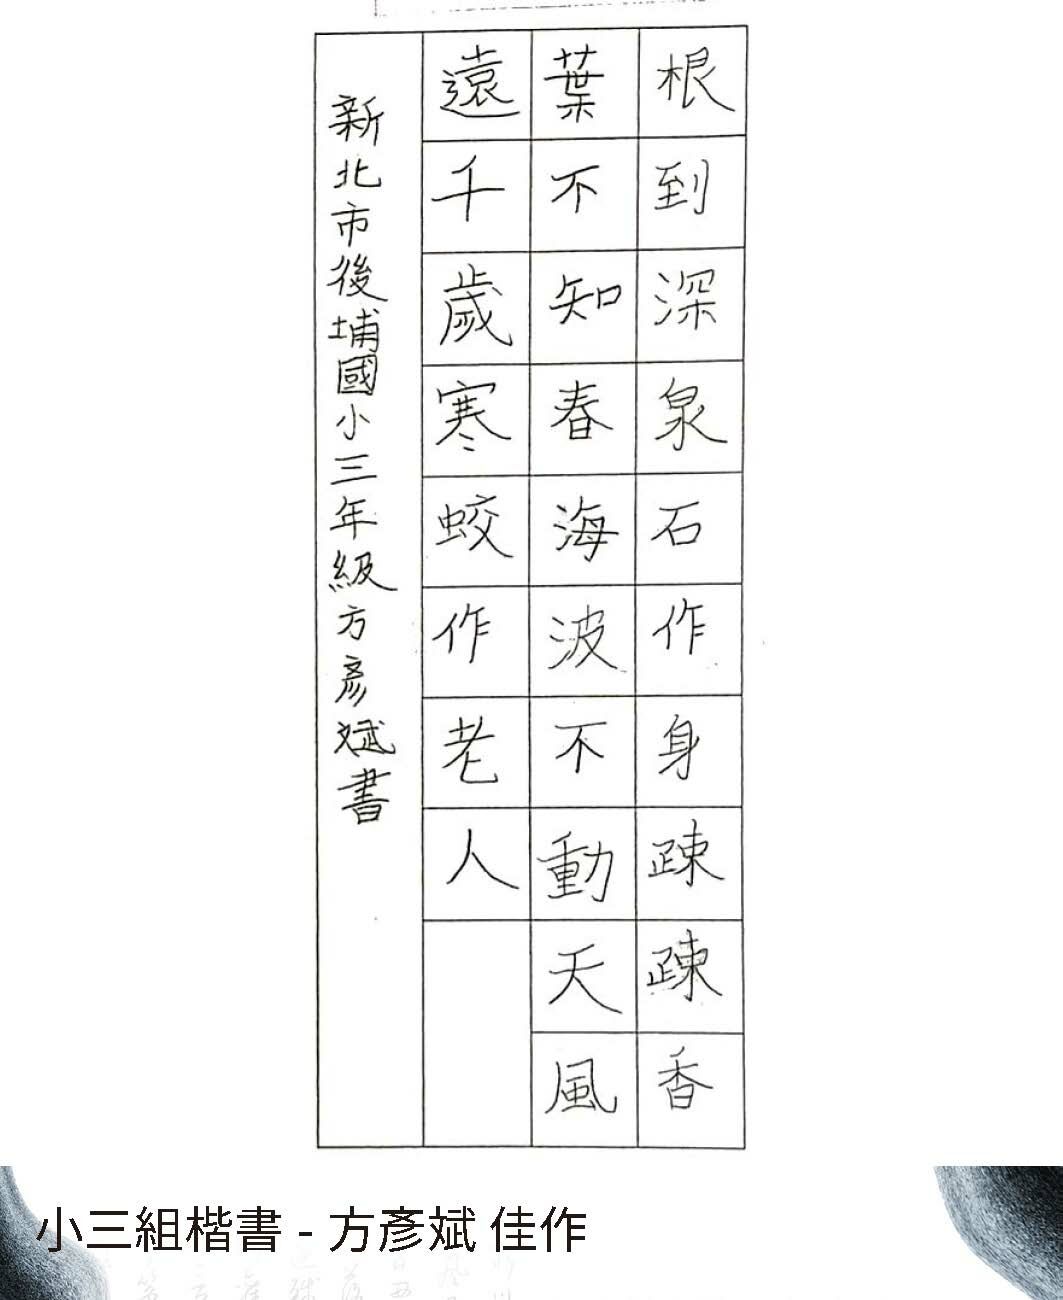 根到深泉石作身踈踈香
葉不知春海波不動天風
遠千歲寒蛟作老人
新北市後埔國小三年級方彥斌書
小三組楷書 - 方彥斌 佳作